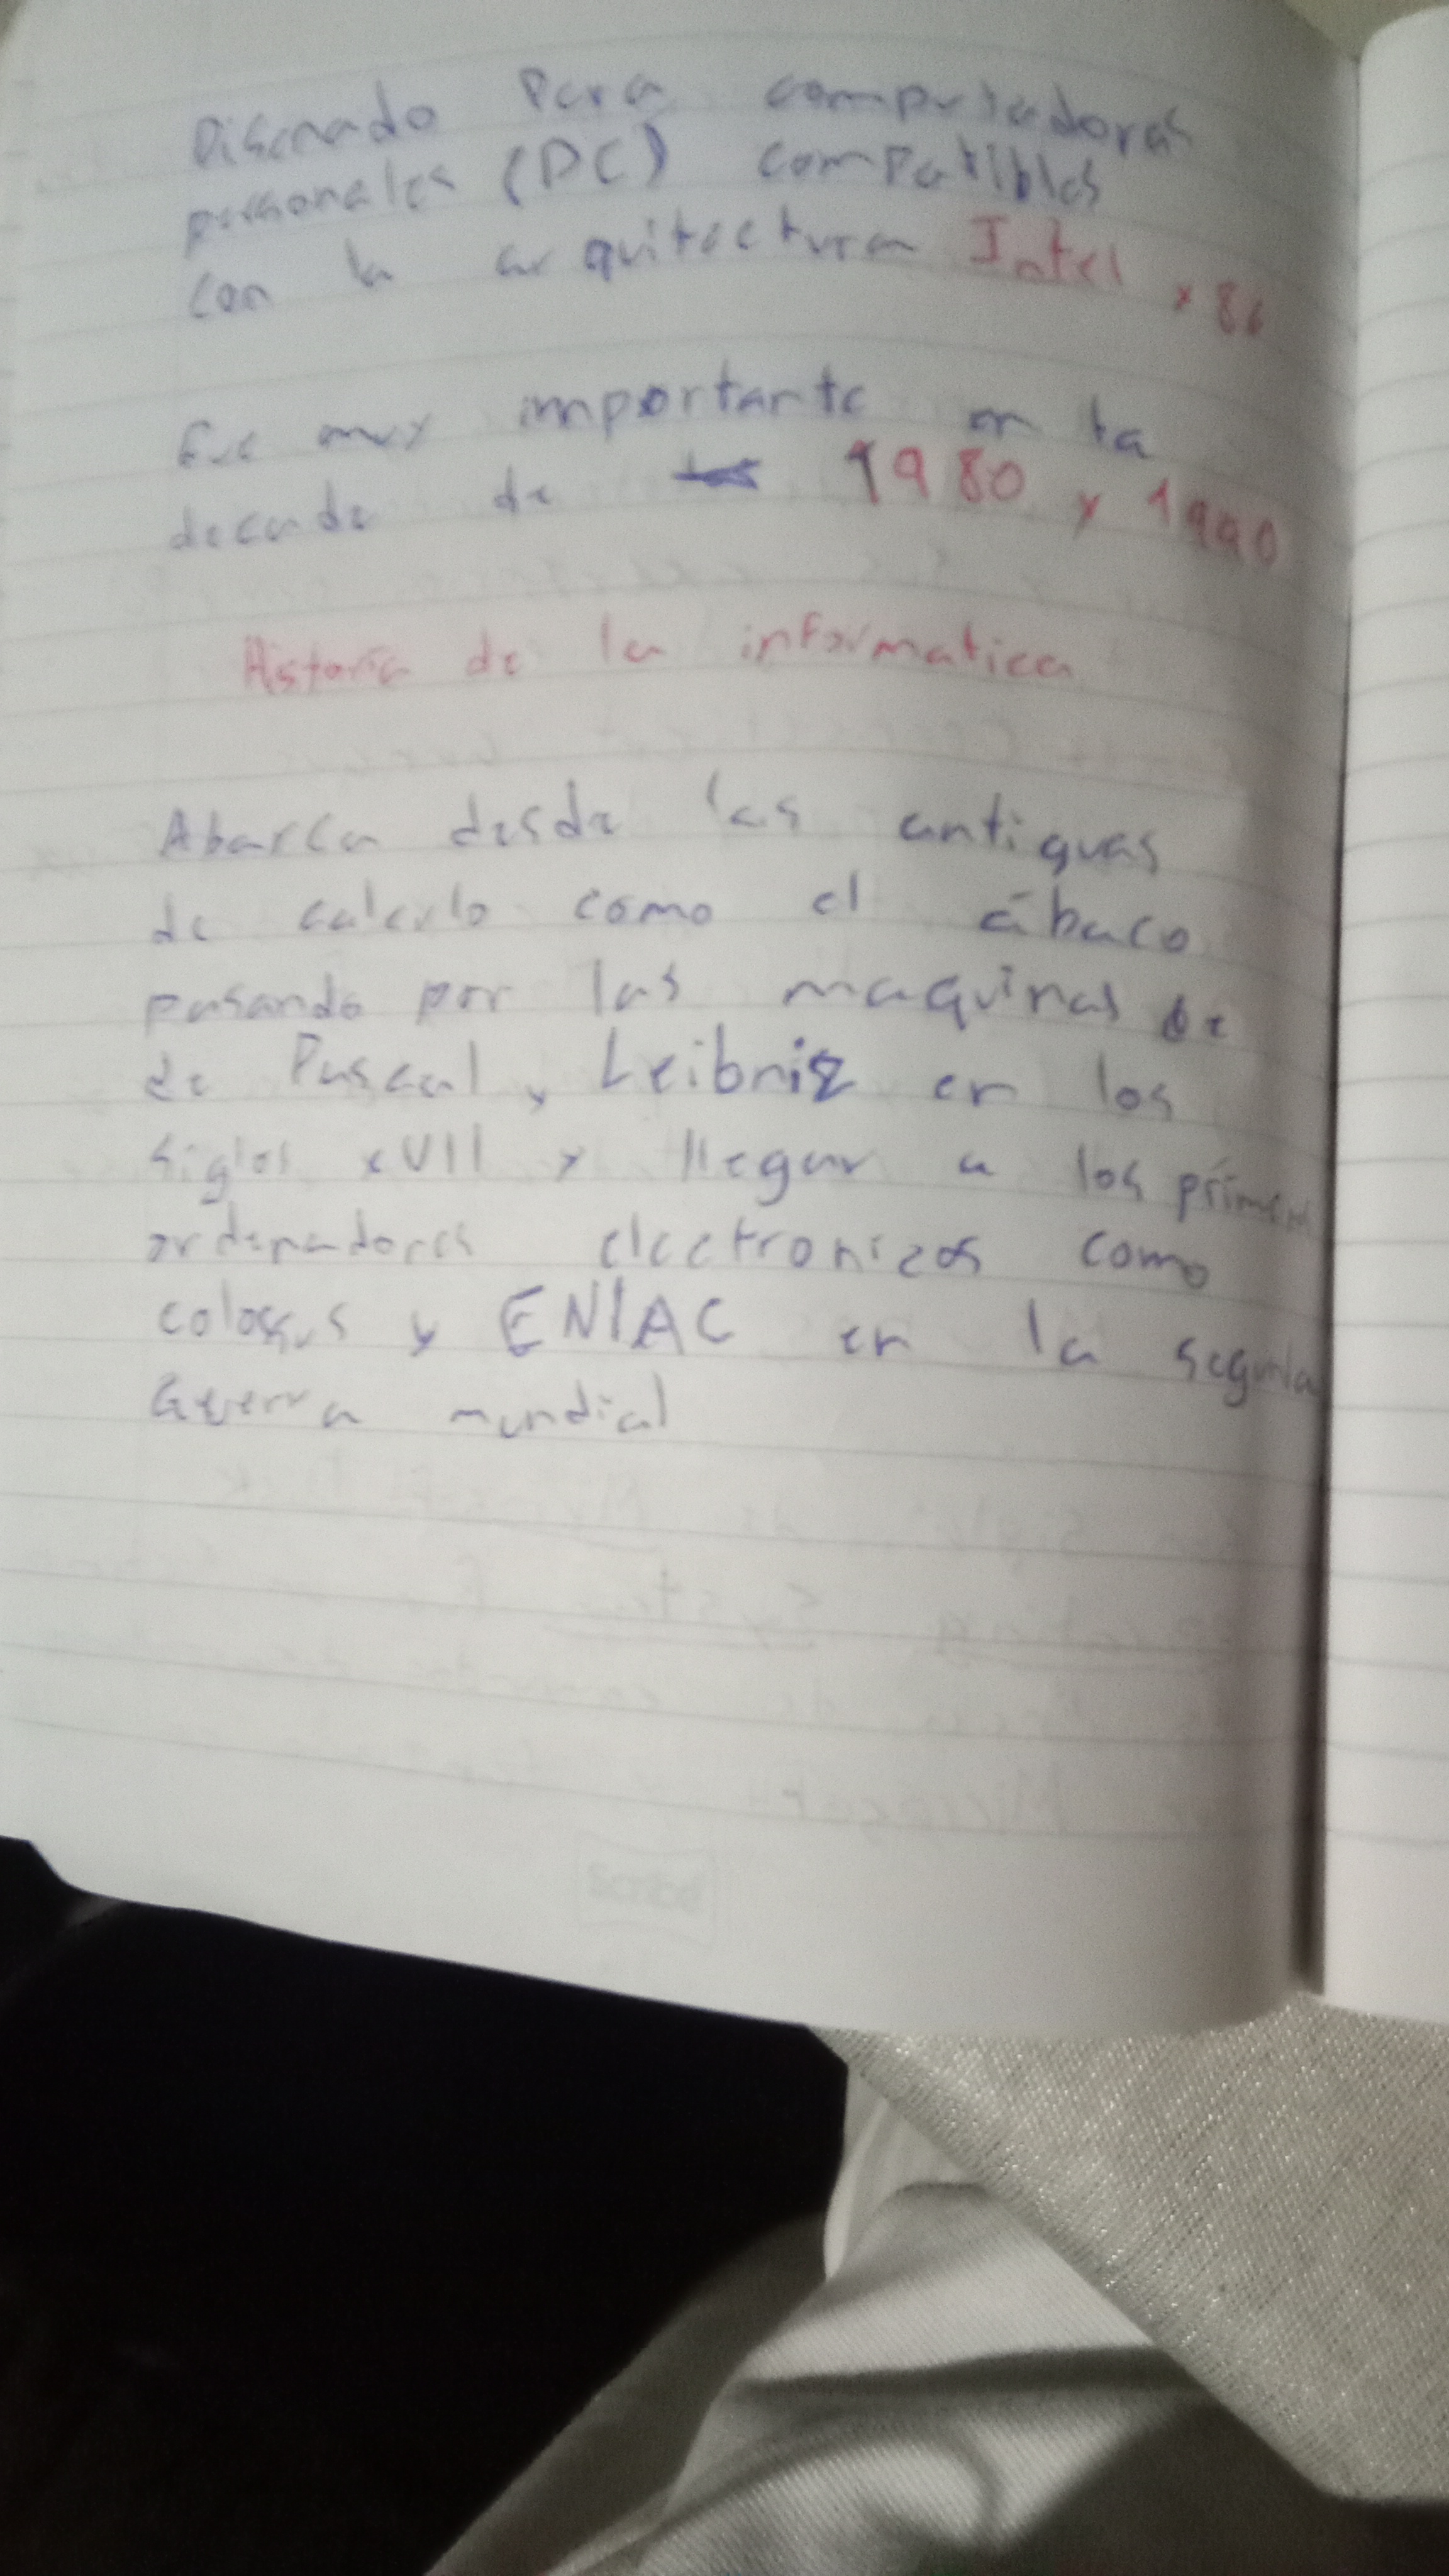 Diseñado Para computadoras
personales (PC) compatibles
con la arquitectura Intel x86
Fue muy importante en la
decada de 1980 y 1990
Historia de la informatica
Abarca desde las antiguas
de calculo como el ábaco
pasando por las maquinas de
de Pascal y Leibniz en los
siglos XVII y llegar a los primeros
ordenadores electronicos como
colossus y ENIAC en la segunda
Guerra mundial